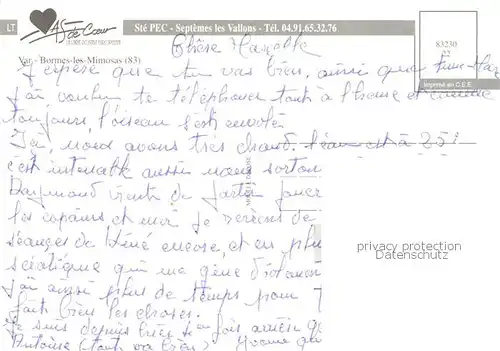 LT
As de Cœur
Sté PEC - Septèmes les Vallons - Tél. 04.91.65.32.76
83230
Imprimé en C.E.E.
Var - Bormes-les-Mimosas (83)
Chère
J'espère que tu vas bien, ainsi que
j'ai voulu te téléphoner tout à l'heure et comme
toujours, l'oiseau s'est envolé.
Ici, nous avons très chaud. l'eau est à 25°
c'est intenable aussi nous sortons
Raymond vient de partir jouer
les copains et moi je reviens de
séances de kiné encore, et en plus
sciatique qui me gêne
j'ai aussi plus de temps pour
fait bien les choses.
Je suis depuis hier
Antoine (tout va bien) Yvonne
privacy protection
Datenschutz